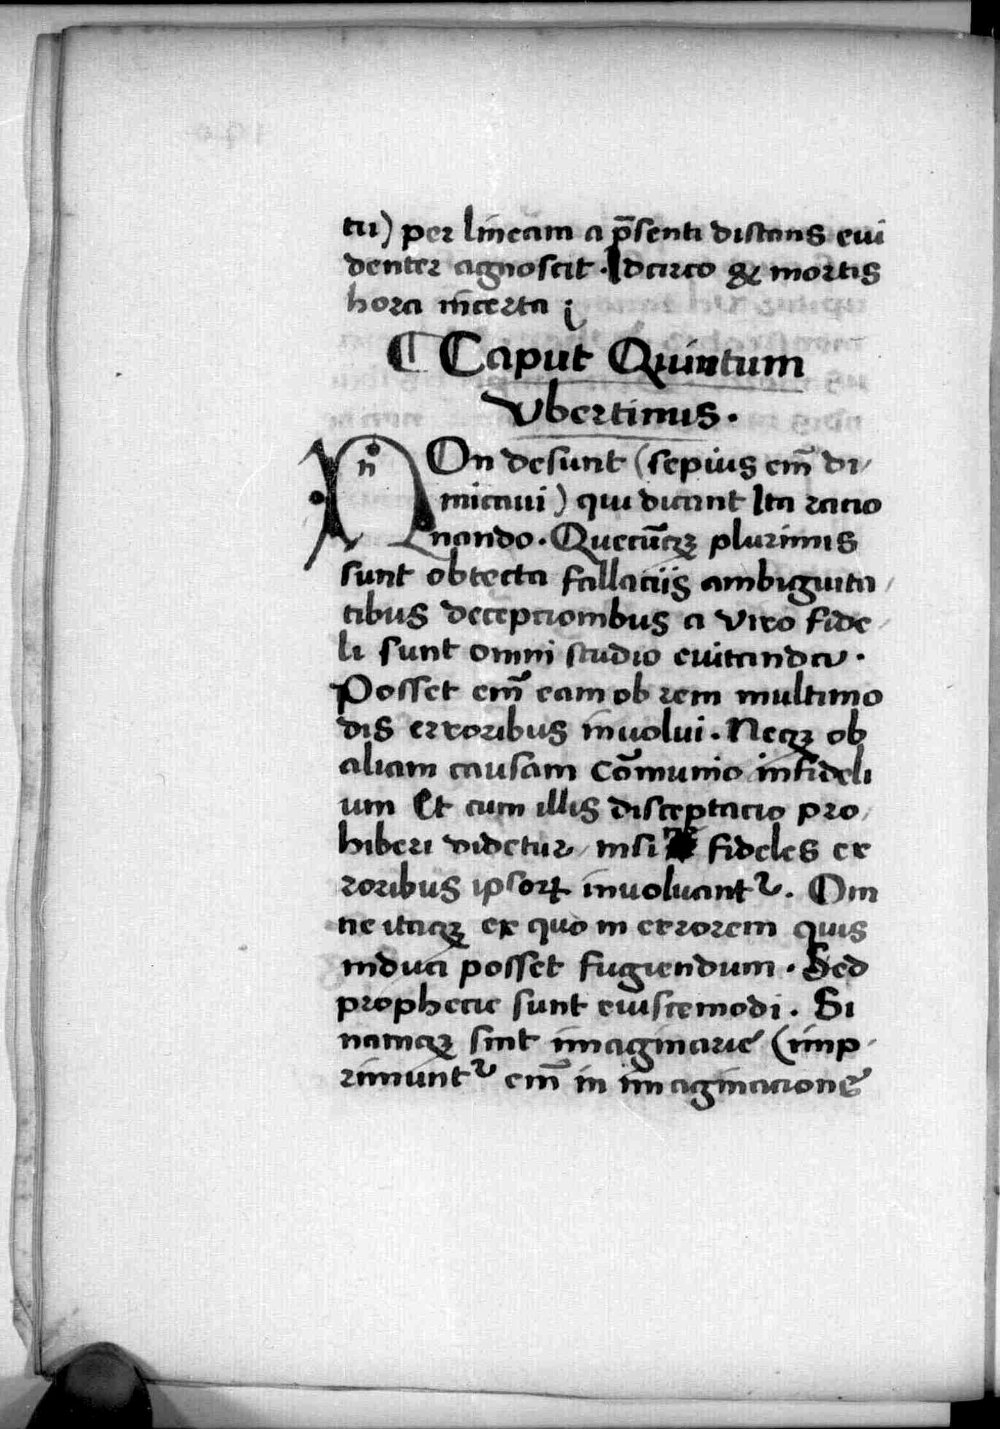 tu) per lineam a p̄senti distans eui
denter agnoscit. Idcirco & mortis
hora incerta
Caput Quintum
Vbertinus.
NOn desunt (sepius em̄ di/
micaui) qui dicant Ita racio
nando. Quecūqꝫ plurimis
sunt obtecta fallaciis ambiguita/
tibus decepcionibus a viro fide/
li sunt omni studio euitanda.
Posset em̄ eam ob rem multimo
dis erroribus inuolui. Neqꝫ ob
aliam causam Cōmunio infideli
um Et cum illis disceptacio pro/
hiberi videtur/ nisi fideles er
roribus ipsoꝝ inuoluant᷑. Om
ne itaqꝫ ex quo in errorem quis
induci posset fugiendum. Sed
prophecie sunt eiuscemodi. Si
namqꝫ sint imaginarie (imp/
rimunt᷑ em̄ in imaginacione